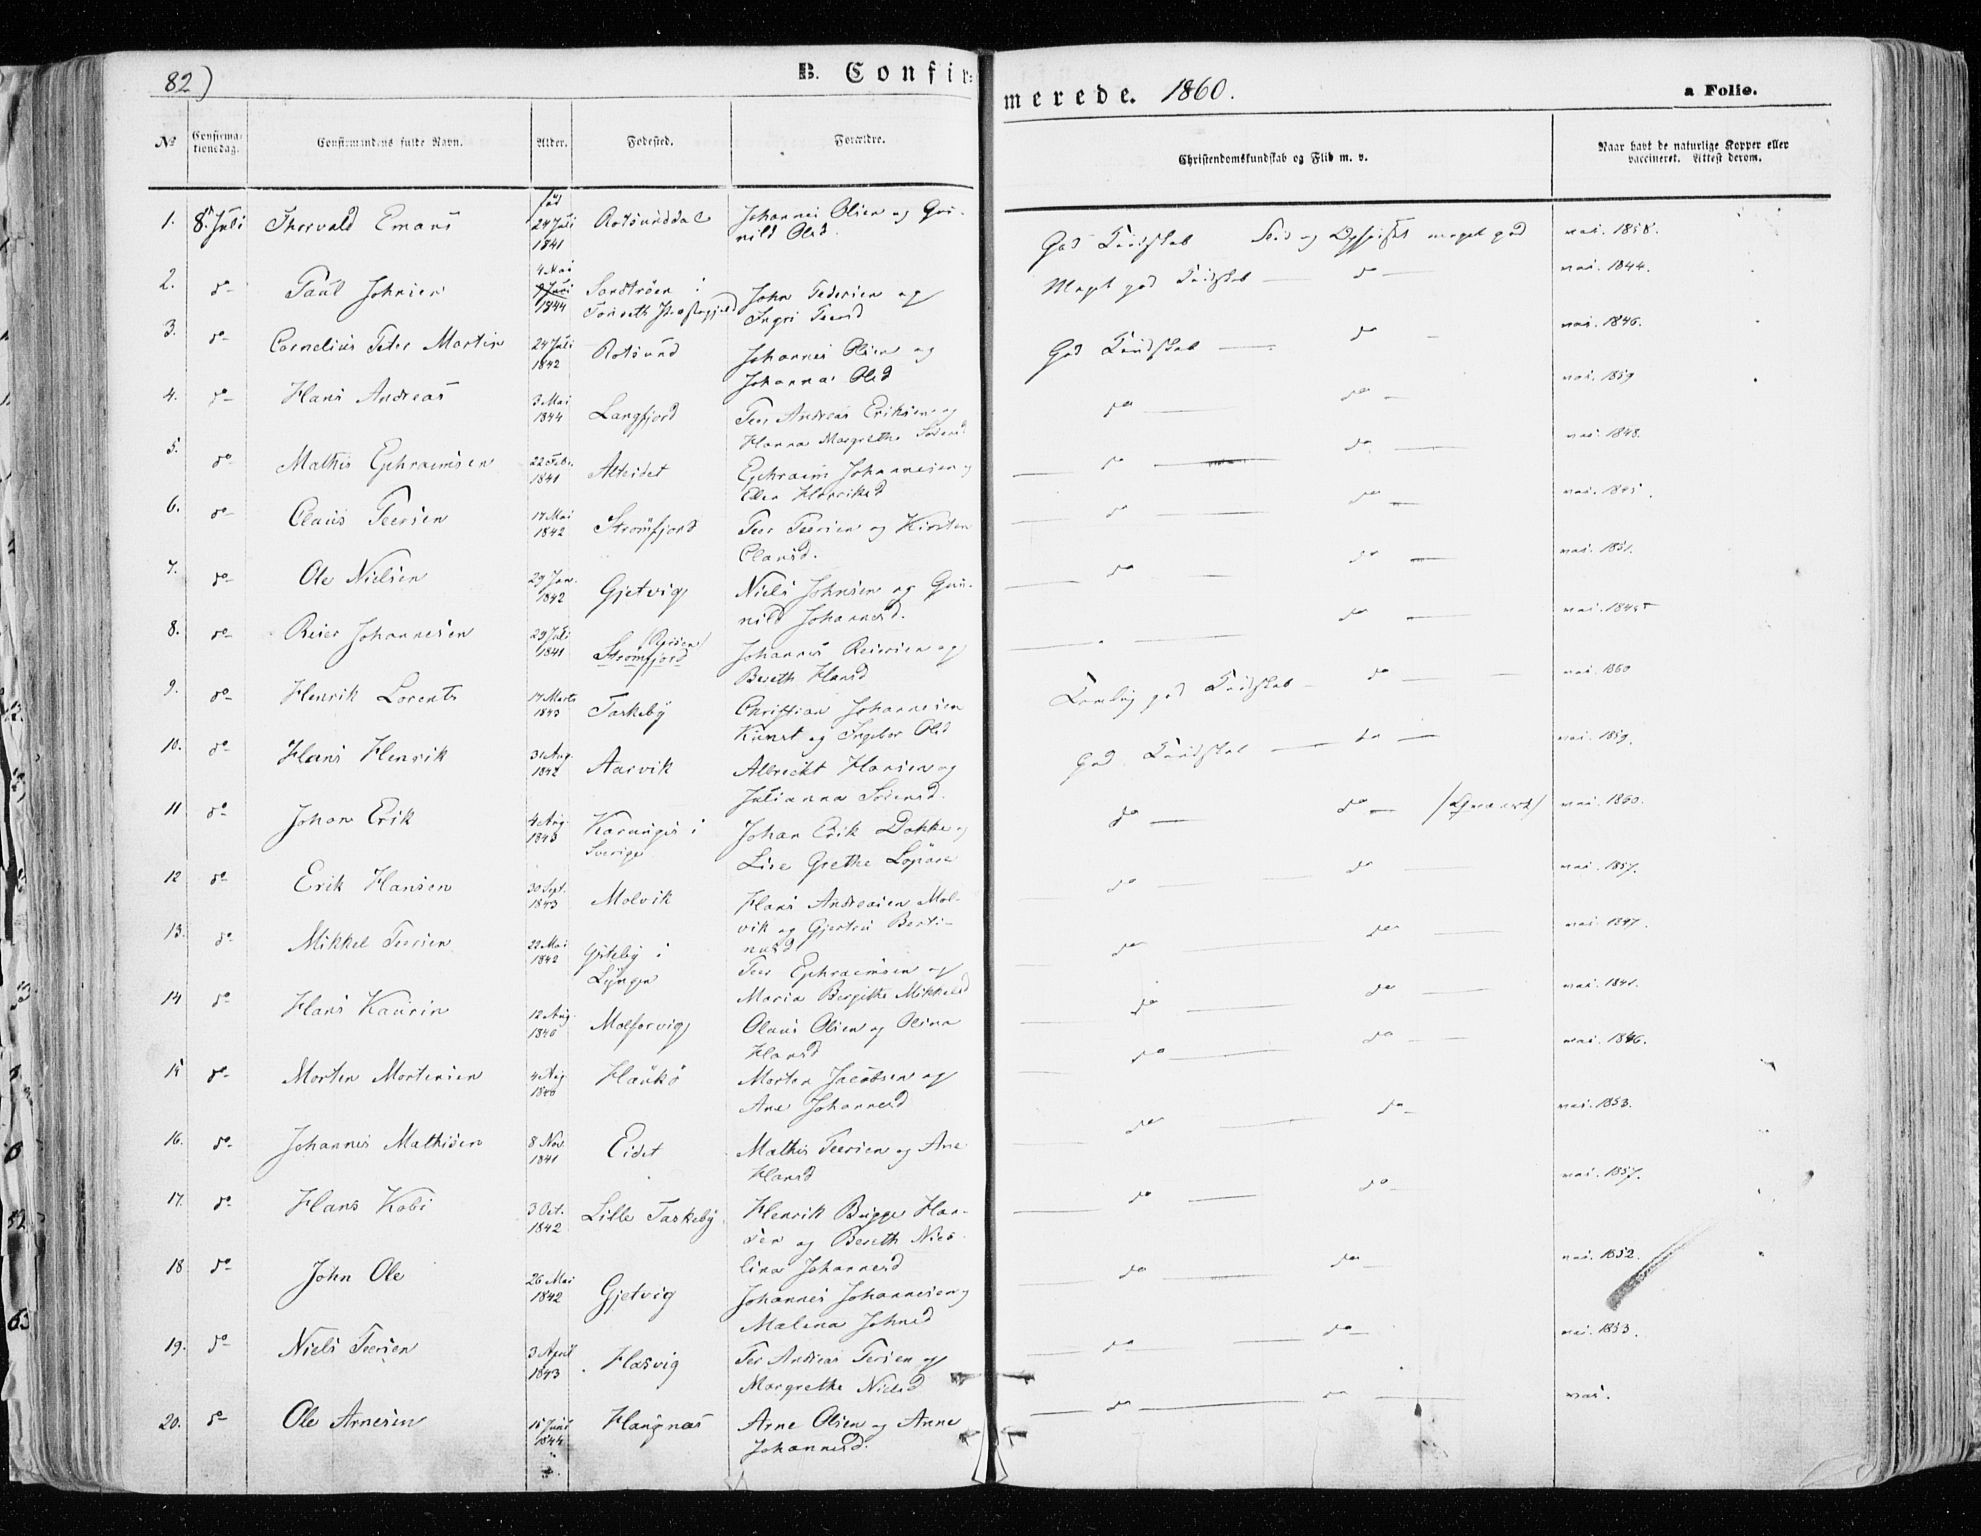 82)
B. Confir-
merede. 1860.
a Folio.
No
Confirma-
tionsdag.
Confirmandens fulde Navn.
Alder.
Fødested.
Forældre.
Christendomskundskab og Flid m. v.
Naar havt de naturlige Kopper eller
vaccineret. Attest derom.
1. 8. Juli Thorvald Emans født 24 Juli 1841 Rotsunddal Johannes Olsen og Gu-
nild Olsd. God Kundskab Flid og Opførsel meget god vac. 1858.
2. do Paul Johnsen 4 Mai 1844 i John Pedersen og
Ingri Peersd Meget god Kundskab do vac. 1844.
3. do Cornelius Peter Martin 24 Juli 1842 Rotsund Johannes Olsen og
Johanna Olsd God Kundskab do vac. 1846.
4. do Hans Andreas 3 Mai 1844 Langfjord Peer Andreas Eriksen og
Hanna Margrethe do do vac. 1859
5. do Mathis Ephraimsen 22 Febr. 1841 Alteidet Ephraim Johannesen og
Ellen Henriksd do do vac. 1848.
6. do Claus Peersen 17 Mai 1842 Strømfjord Peer Peersen og Kirsten
Clausd. do do vac. 1845.
7. do Ole Nielsen 29 Jan. 1842 Gjetvig Niels Johnsen og Gu-
nild Johannesd. do do vac. 1851.
8. do Reier Johannesen 29 Juli 1841 Strømfjord Johannes Reiersen og
Bereth Hansd do vac. 1845
9. do Henrik Lorents 17 Marts 1843 Taskeby Christian Johannesen
Kunst og Ingebor Olsd Temelig god Kundskab do vac. 1860
10. do Hans Henrik 31 Aug. 1842 Aarvik Albrecht Hansen og
Julianna Sørensd. God Kundskab do vac. 1859.
11 do Johan Erik 4 Aug. 1843 Karungis i
Sverige Johan Erik Dokke og
Lise Grethe do do (Qvæn) vac. 1860.
12 do Erik Hansen 30 Sept. 1843 Molvik Hans Andreasen Mol-
vik og Gjertru Berti-
nusd do do vac. 1857.
13. do Mikkel Peersen 22 Mai 1842 i
Lyngen Peer Ephraimsen og
Maria Bergithe Mikkelsd do do vac. 1847.
14 do Hans Kaurin 12 Aug. 1840 Malforvig Olaus Olsen og Olina
Hansd do do vac. 1841.
15 do Morten Mortensen 4 Aug 1840 Haukø Morten Jacobsen og
Ane Johannesd do do vac. 1846.
16. do Johannes Mathisen 8 Nov 1841 Eidet Mathis Peersen og Ane
Hansd do do vac. 1853.
17. do Hans Kobi 3 Oct. 1842 Lille Taskeby Henrik Bugge Han-
sen og Bereth Nico-
lina Johannesd do do vac. 1857.
18 do John Ole 26 Mai 1842 Gjetvig Johannes Johannesen og
Malena Johnsd do do vac. 1852.
19. do Niels Peersen 3 April 1843 Hasvig Per Andreas Persen og
Margrethe Nielsd do do vac. 1853.
20. do Ole Arnesen 15 Juni 1844 Haugnæs Arne Olsen og Anne
Johannesd. do do vac.